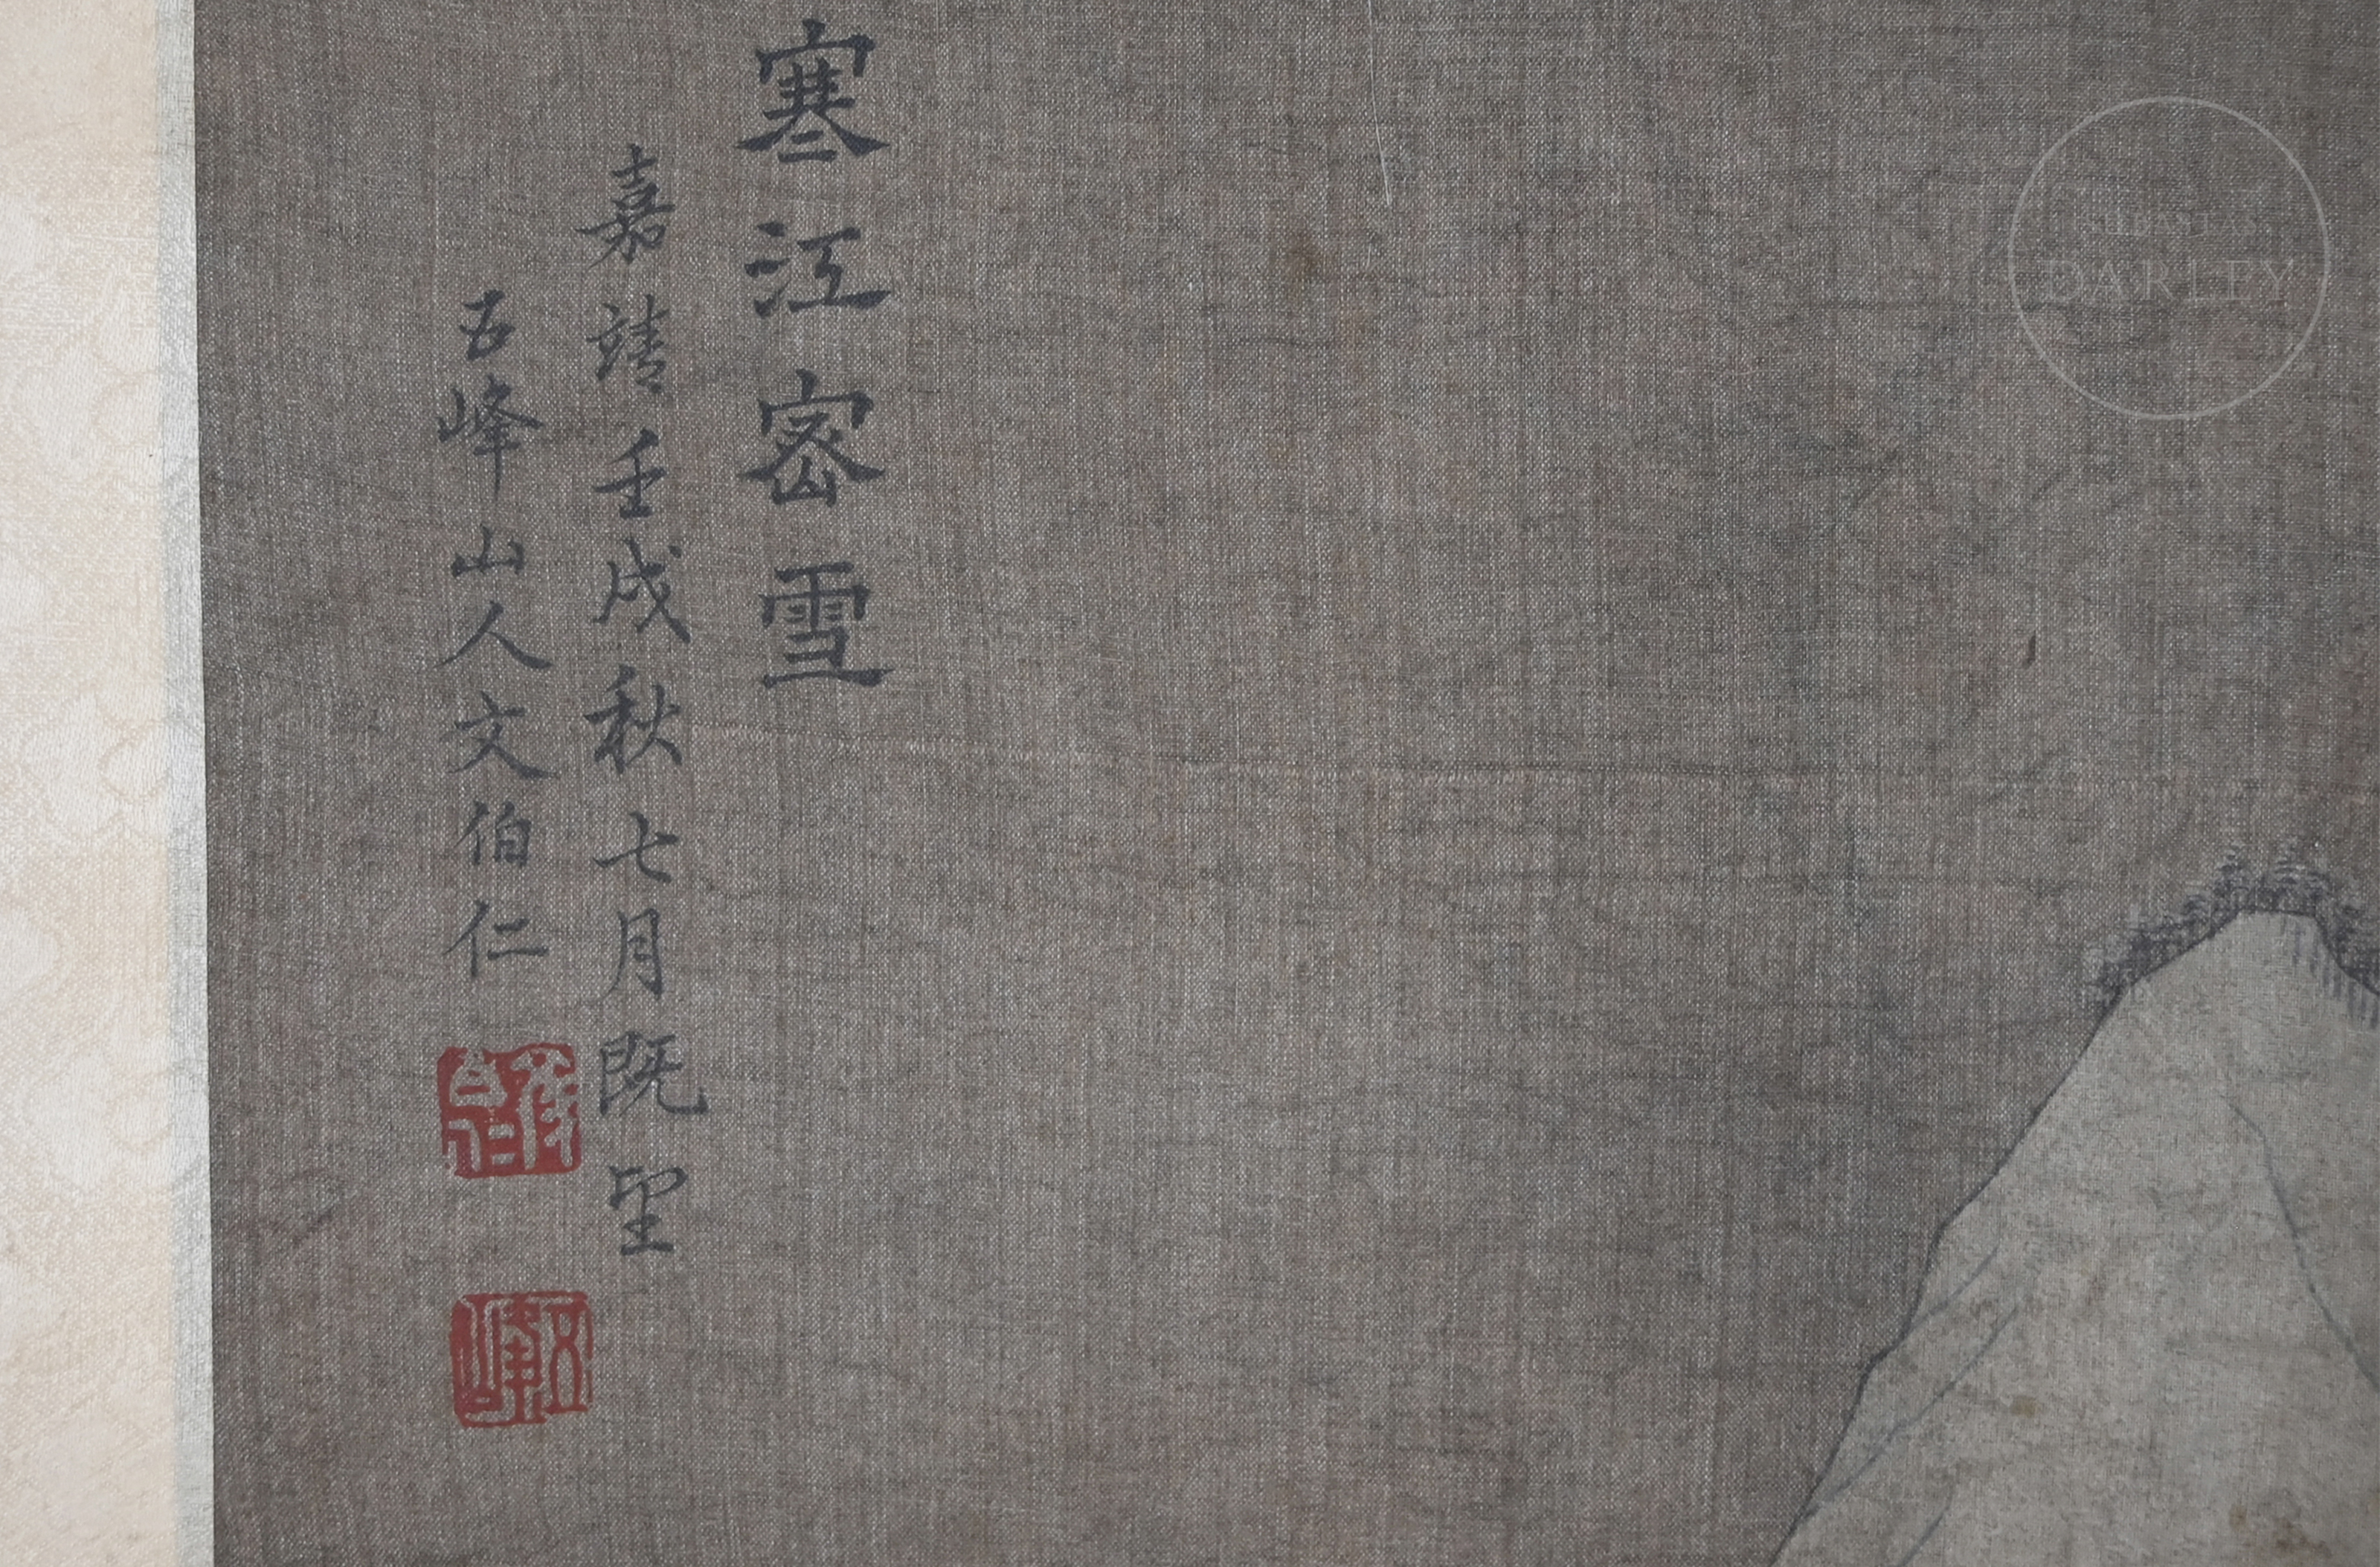 寒江密雪
嘉靖壬戌秋七月既望
五峰山人文伯仁
五峰
DARLEY